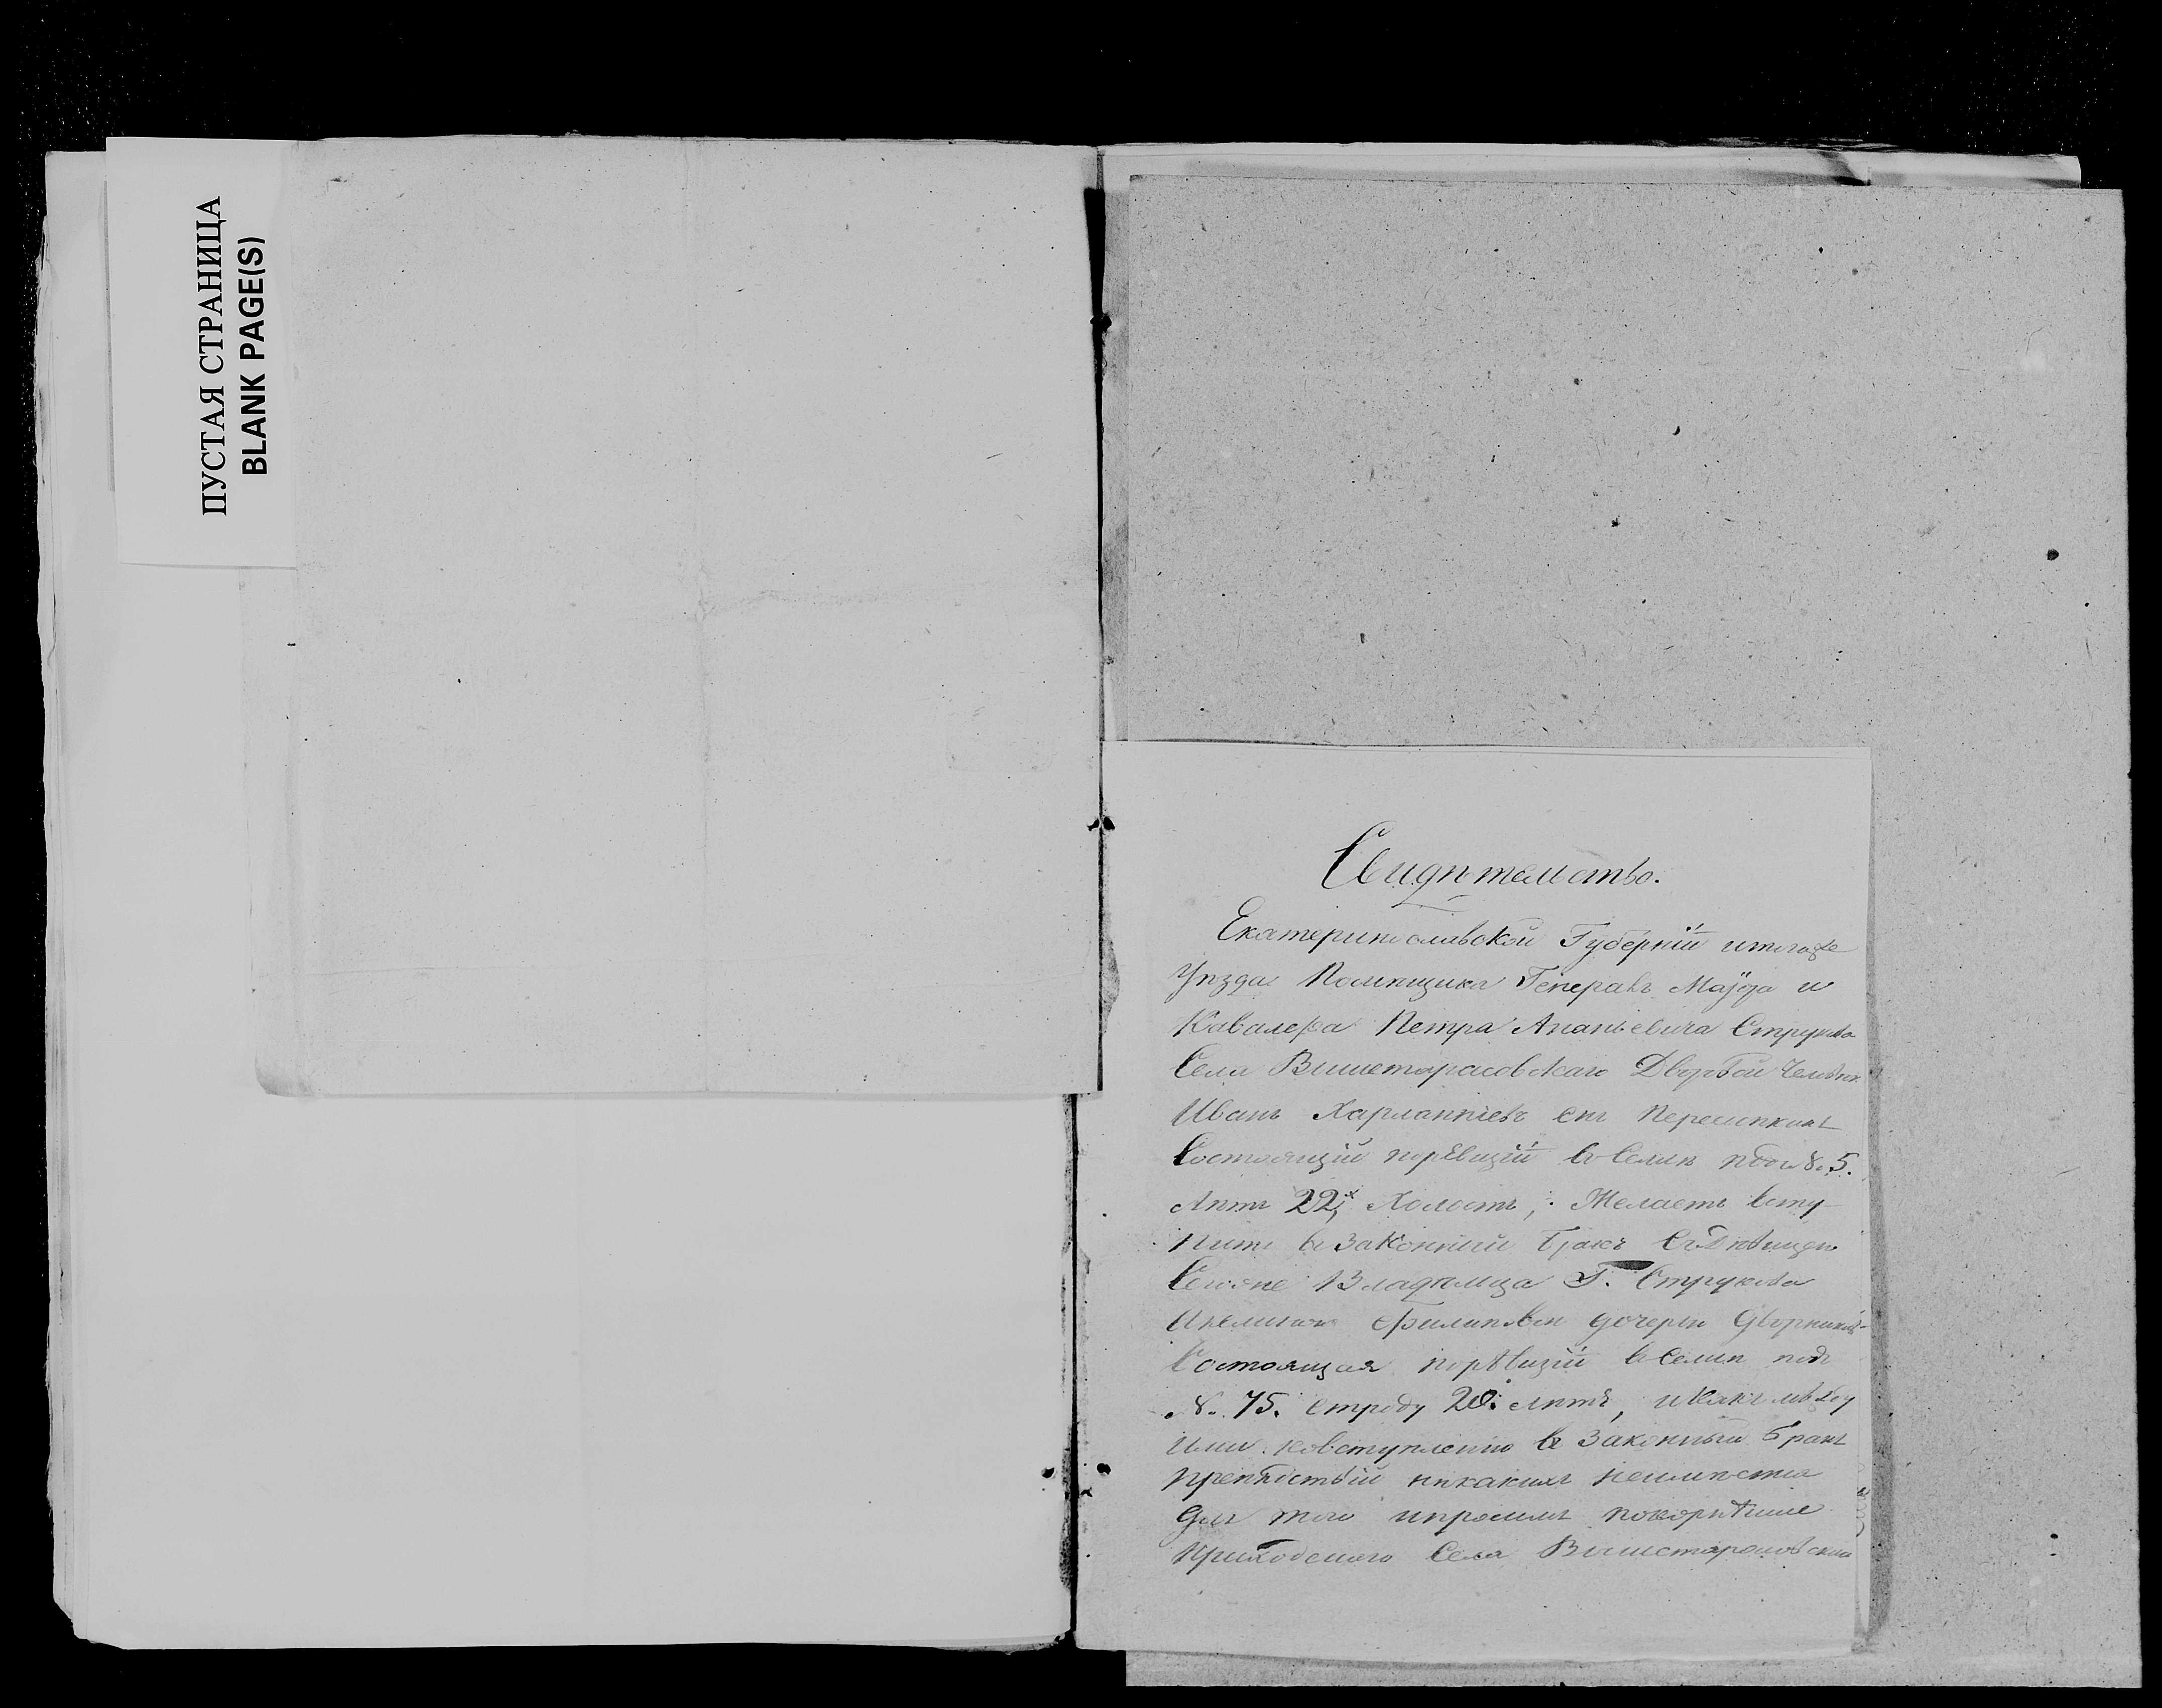 ПУСТАЯ СТРАНИЦА
BLANK PAGE(S)
Свидѣтельство.
Екатеринославской Губерніи итогоже
Уѣзда Помѣщика Генералъ Маіора и
Кавалера Петра Ананьевича Струкова
Села Вышетарасовскаго Дворовой Человѣк
Иванъ Харлампіевъ снъ
Состоящій поревизіи въ Семѣ подъ №. 5.
Лѣтъ 22х, Холостъ, Желаетъ всту-
пить въ законный бракъ Съ Дѣвицею
Сегоже Владѣльца Г. Струкова
Акелиною Филиповою дочерью
Состоящая поревизіи въ Семѣ подъ
№. 75. отроду 20. лѣтъ, и какъ между
ими ковступленію въ законный бракъ
препятствій никакихъ неимѣется
для того и просимъ покорнѣише
Приходскаго Села Вышетарасовскаго